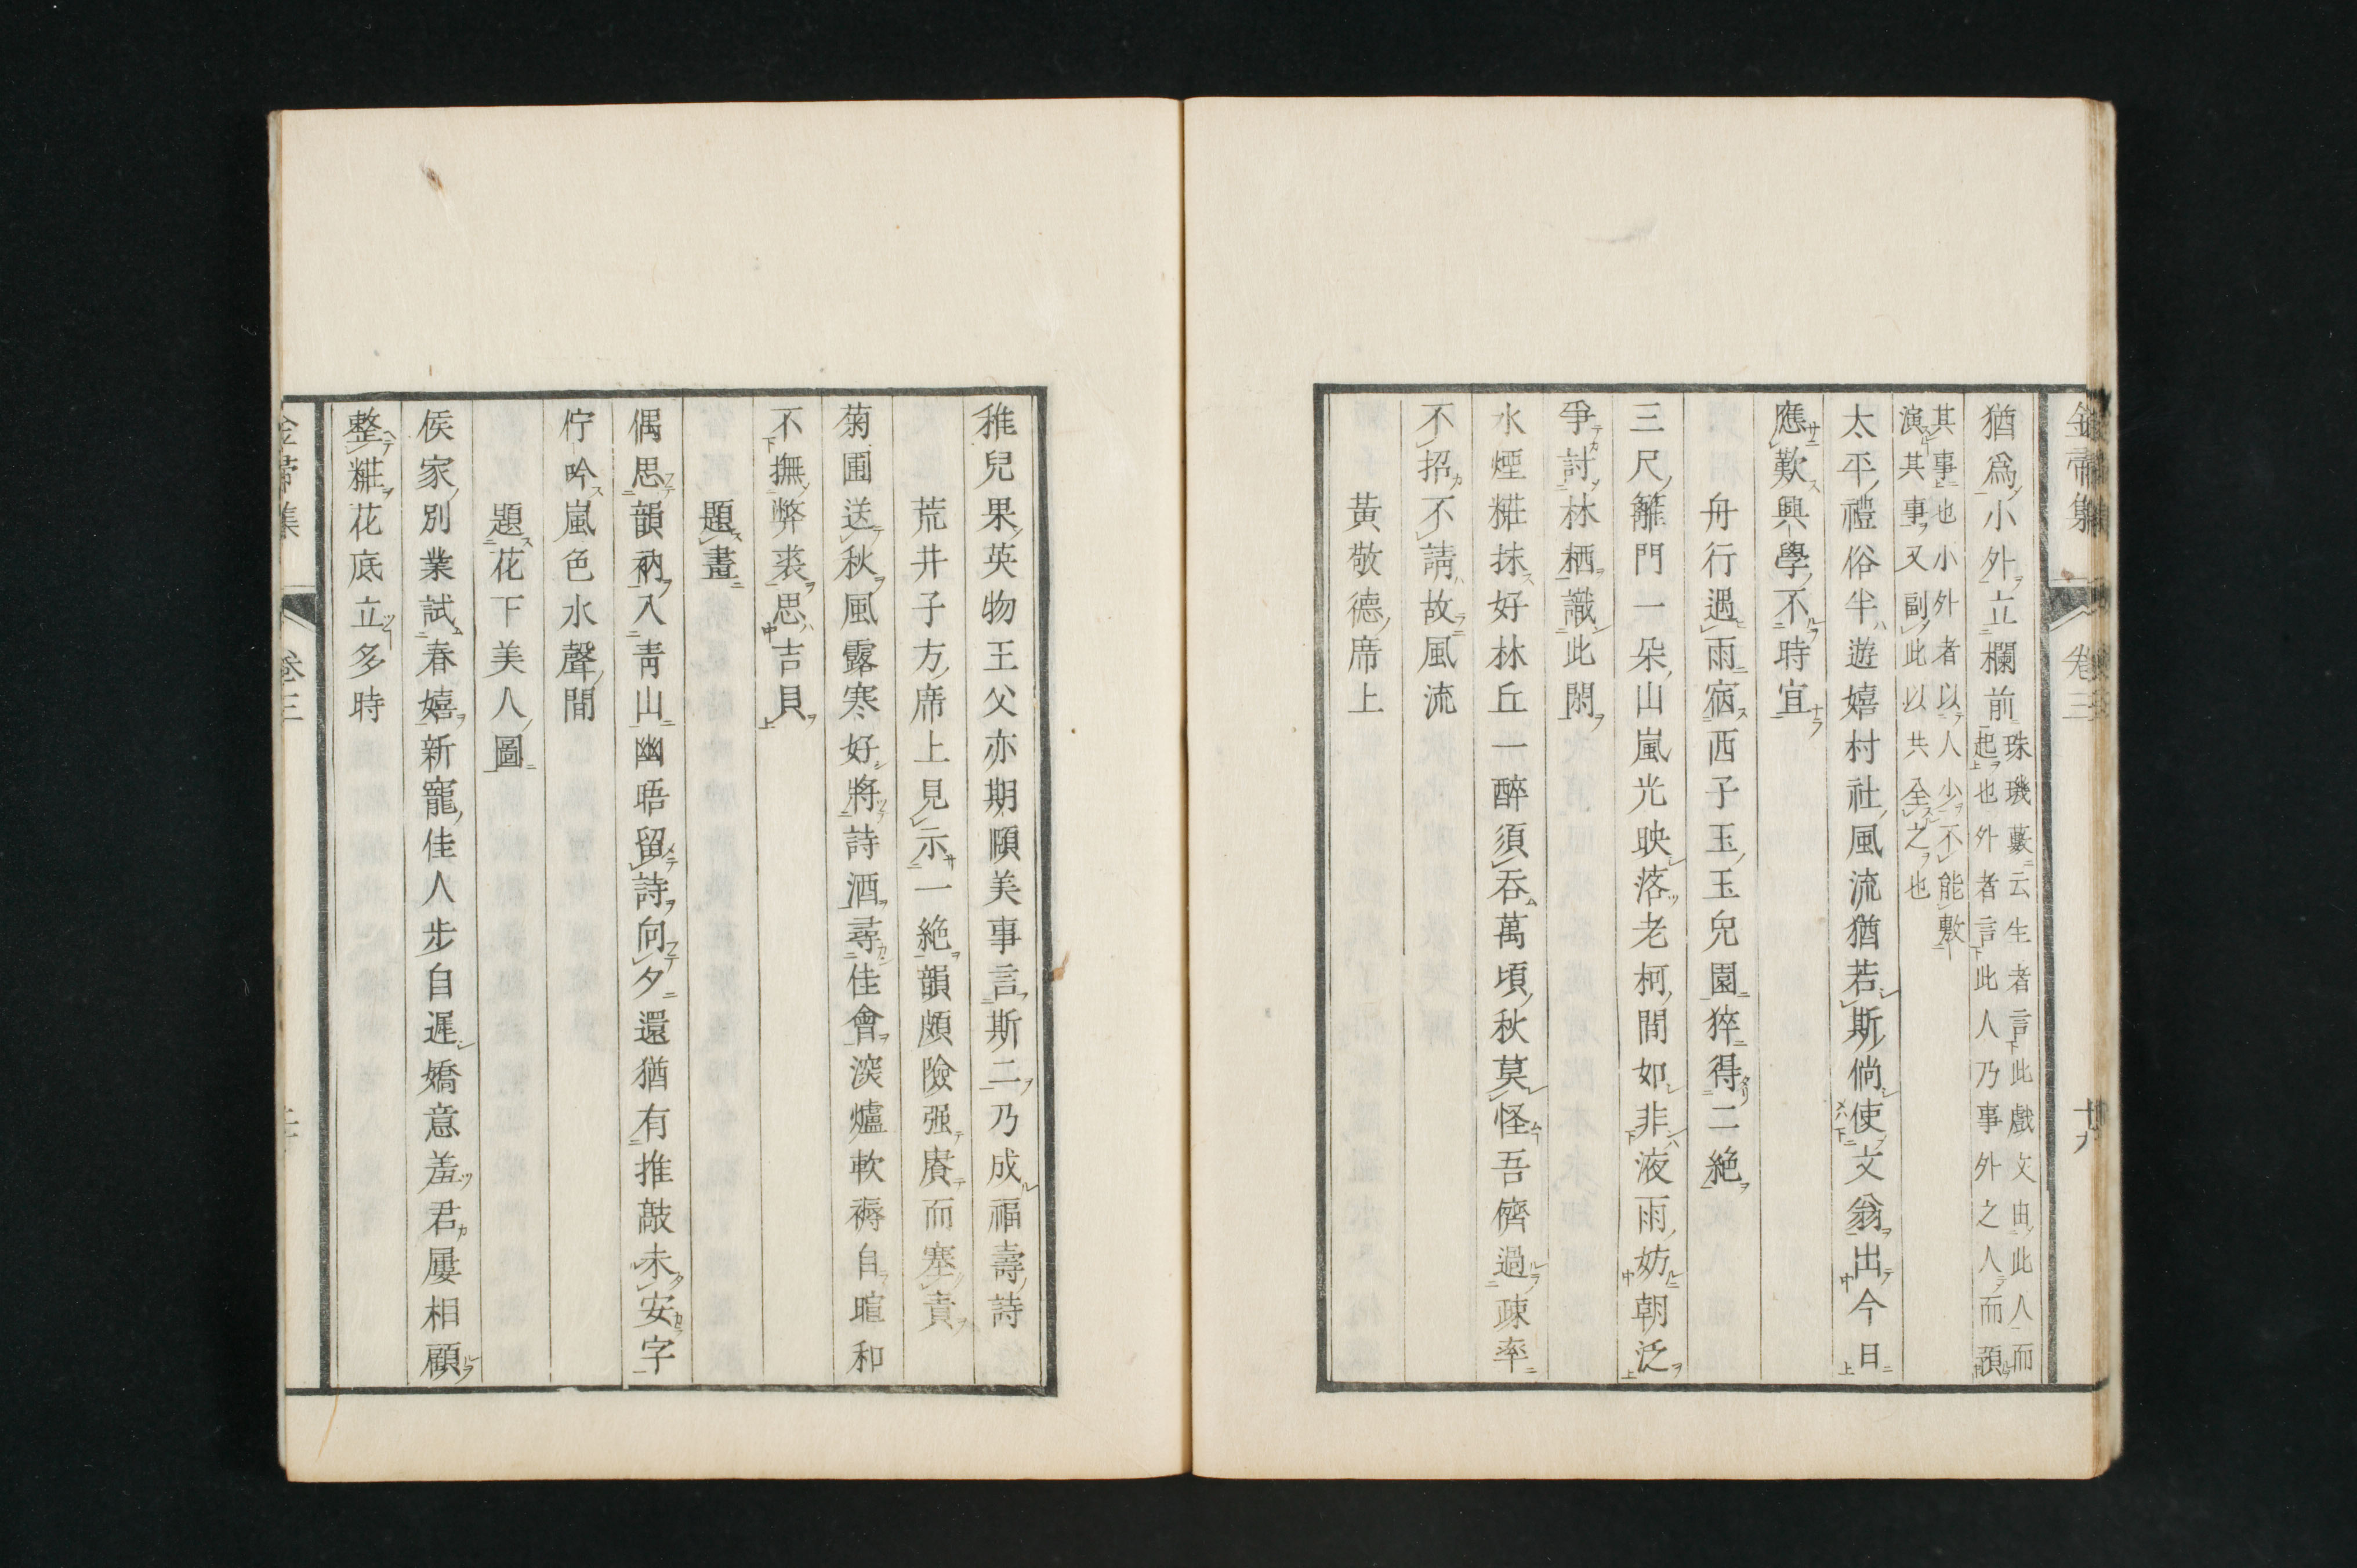 金帚集 卷三 十九
猶爲小外立欄前
珠璣藪云生者言此戲文由此人而
起也外者言此人乃事外之人而預
其事也小外者以人少不能敷
演其事又副此以共全之也
太平禮俗半遊嬉村社風流猶若斯倘使文翁出今日
應歎興學不時宜
舟行遇雨宿西子玉玉兒園猝得二絶
三尺籬門一朶山嵐光映落老柯間如非液雨妨朝泛
爭討林栖識此閑
水煙糚抹好林丘一醉須吞萬頃秋莫怪吾儕過疎率
不招不請故風流
黃敬德席上
稚兒果英物王父亦期頤美事言斯二乃成福壽詩
荒井子方席上見示一絶韻頗險强賡而塞責
菊圃送秋風露寒好將詩酒尋佳會深爐軟褥自暄和
不撫弊裘思吉貝
題畫
偶思韻衲入靑山幽晤留詩向夕還猶有推敲未安字
佇吟嵐色水聲間
題花下美人圖
侯家別業試春嬉新寵佳人步自遲嬌意羞君屢相顧
整糚花底立多時
卷三